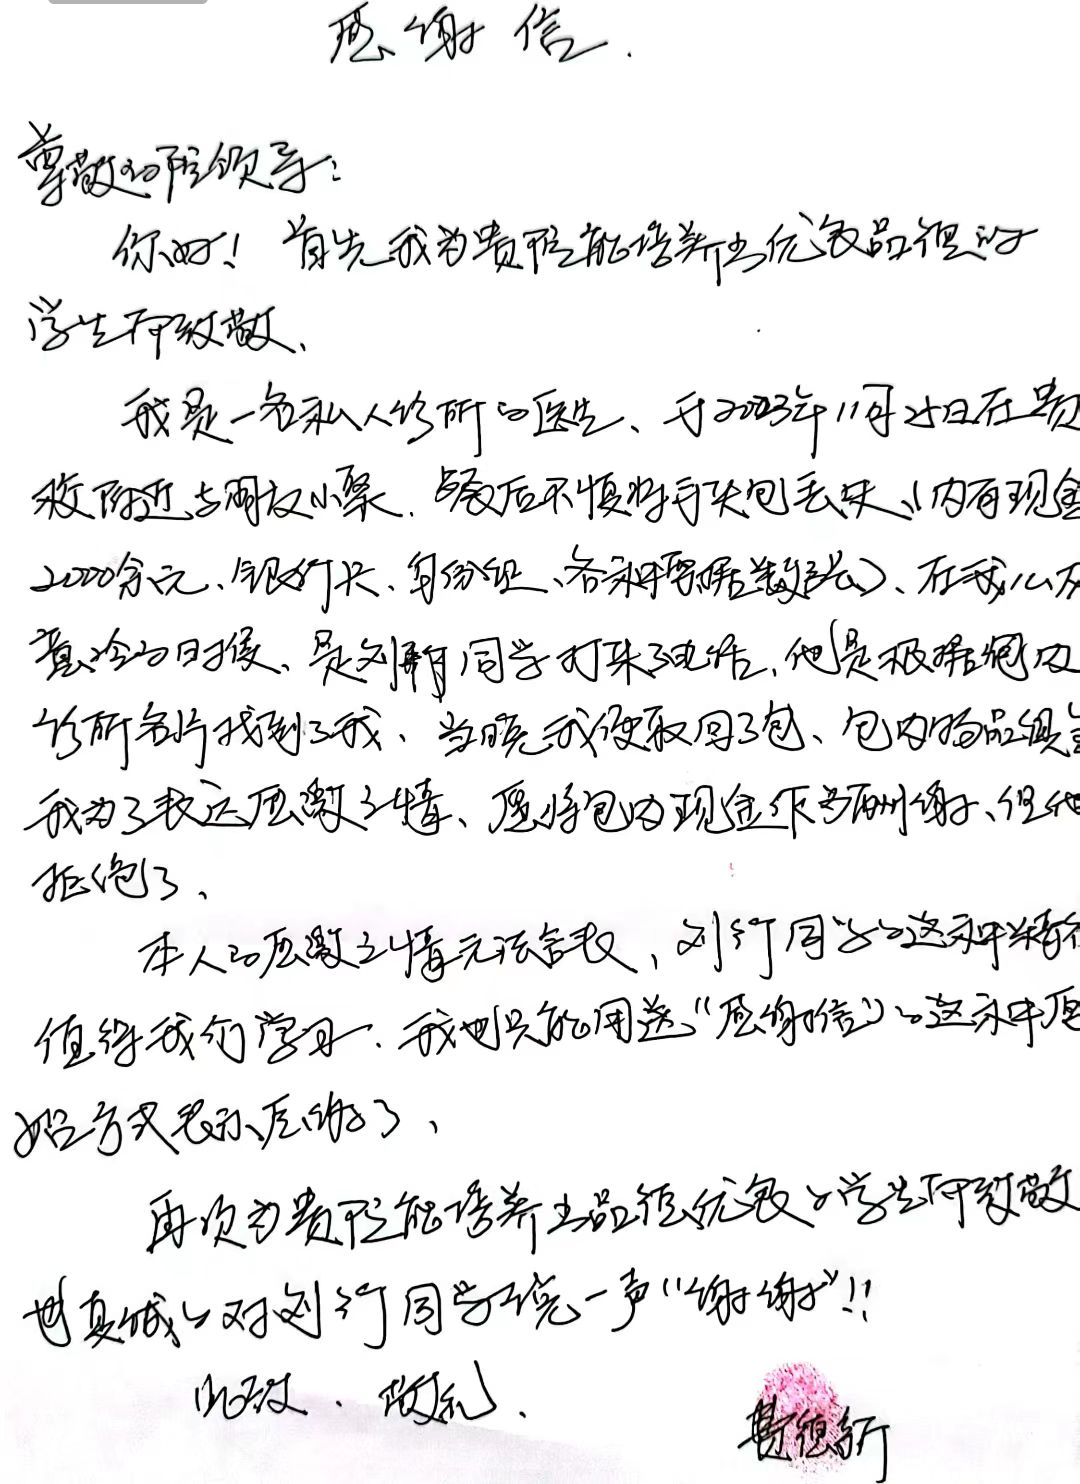 感谢信.
尊敬的院领导:
你好! 首先我为贵院能培养出优良品德的
学生而致敬、
我是一名私人诊所的医生、于2023年11月25日在贵
校附近与朋友小聚. 饭后不慎将手夹包丢失、(内有现金
2000余元、银行卡、身份证、各种票据数张)、在我心灰
意冷的时候、是刘 同学打来了电话, 他是根据包内
诊所名片找到了我、当晚我便取回了包、包内物品俱全
我为了表达感激之情、愿将包内现金作为酬谢、但他
拒绝了、
本人的感激之情无法言表, 刘行同学的这种精神
值得我们学习. 我也只能用送“感谢信”的这种原
始方式表示感谢了、
再次为贵院能培养出品德优良的学生而致敬
也真诚的对刘行同学说一声“谢谢”!!
此致、敬礼.
德新